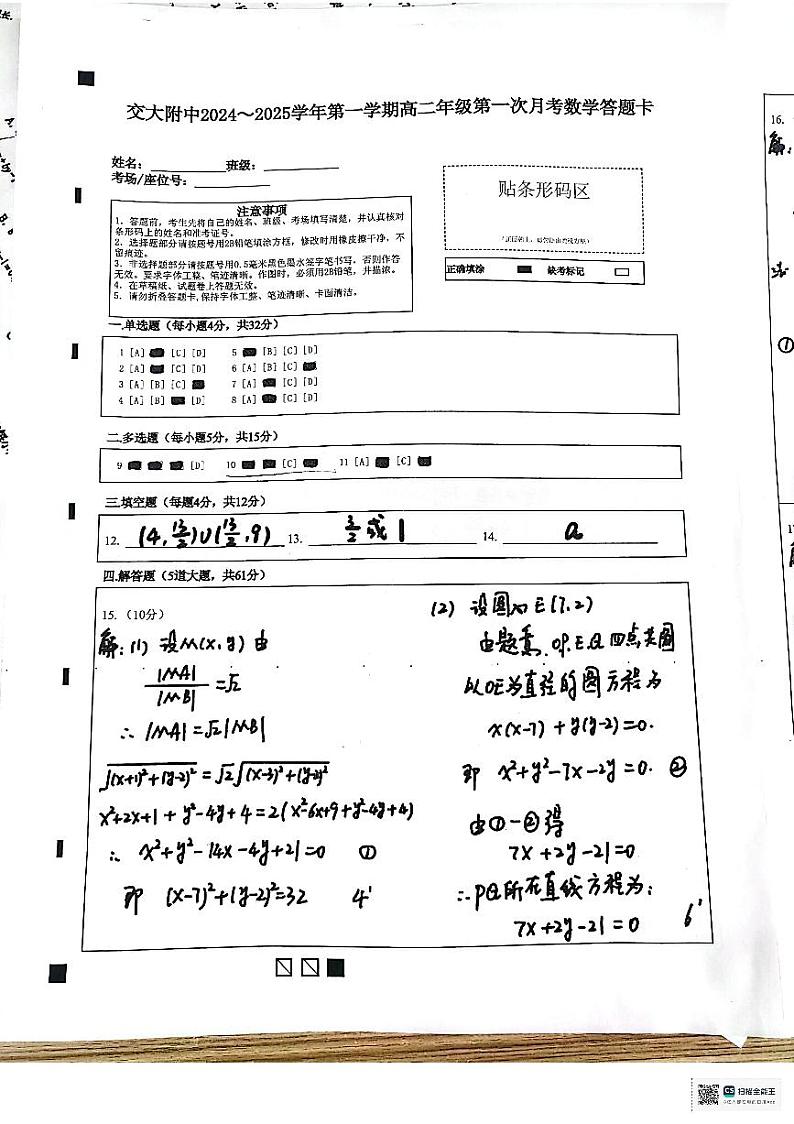 交大附中2024～2025学年第一学期高二年级第一次月考数学答题卡
姓名：
班级：
考场/座位号：
注意事项
1．答题前，考生先将自己的姓名、班级、考场填写清楚，并认真核对
条形码上的姓名和准考证号。
2．选择题部分请按题号用2B铅笔填涂方框，修改时用橡皮擦干净，不
留痕迹。
3．非选择题部分请按题号用0.5毫米黑色墨水签字笔书写，否则作答
无效。要求字体工整、笔迹清晰。作图时，必须用2B铅笔，并描浓。
4．在草稿纸、试题卷上答题无效。
5．请勿折叠答题卡,保持字体工整、笔迹清晰、卡面清洁。
贴条形码区
正确填涂
缺考标记
一.单选题（每小题4分，共32分）
1 [A] [C] [D]
5 [B] [C] [D]
2 [A] [C] [D]
6 [A] [B] [C]
3 [A] [B] [C]
7 [A] [C] [D]
4 [A] [B] [D]
8 [A] [C] [D]
二.多选题（每小题5分，共15分）
9 [D]
10 [C]
11 [A] [C]
三.填空题（每题4分，共12分）
12. (4, 13/2)∪(13/2, 9)
13. 3/2 或 1
14. a
四.解答题（5道大题，共61分）
15.（10分）
解：(1) 设M(x, y) 由
|MA|/|MB| = √2
∴ |MA| = √2|MB|
√(x+1)²+(y-2)² = √2√(x-3)²+(y-2)²
x²+2x+1+y²-4y+4=2(x²-6x+9+y²-4y+4)
∴ x²+y²-14x-4y+21=0 ①
即 (x-7)²+(y-2)²=32 4'
(2) 设圆心E(7,2)
由题意，O,P,E,Q 四点共圆
以OE为直径的圆方程为
x(x-7)+y(y-2)=0.
即 x²+y²-7x-2y=0. ②
由①-②得
7x+2y-21=0
∴PQ所在直线方程为：
7x+2y-21=0 6'
16.
解：
①
扫描全能王